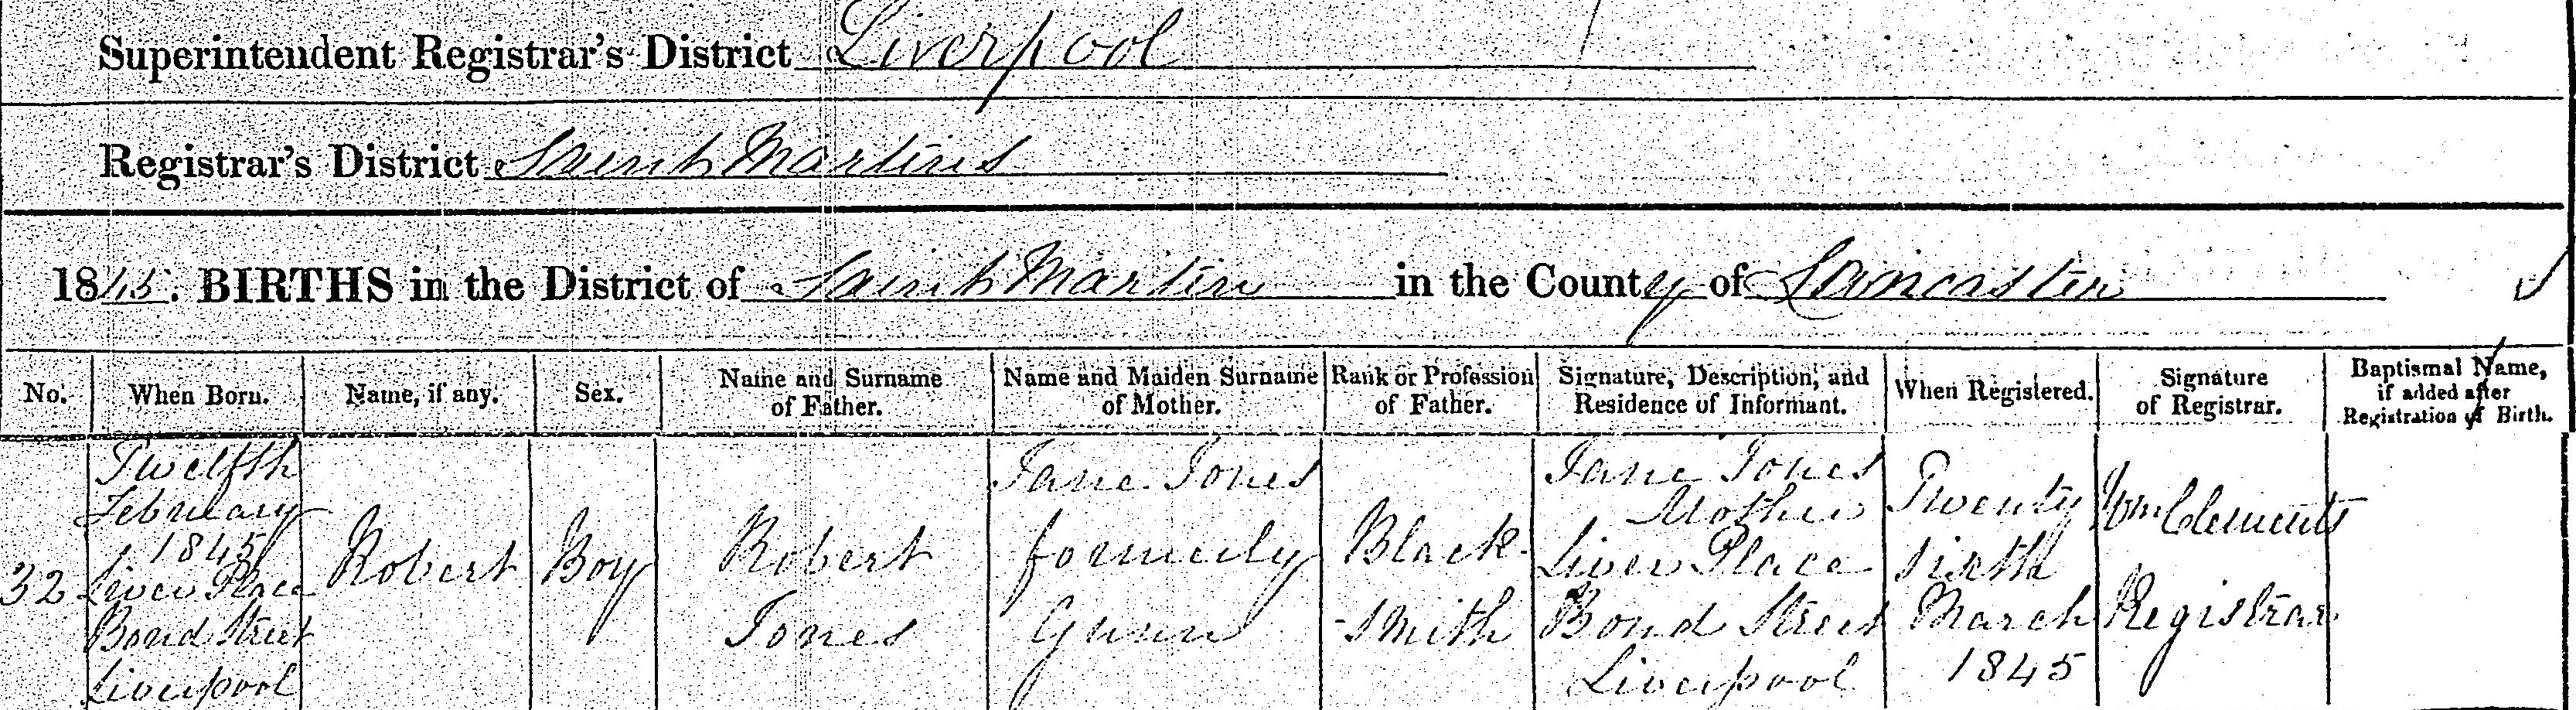 Superintendent Registrar's District Liverpool
Registrar's District Saint Martins
1845. BIRTHS in the District of Saint Martin in the County of Lancaster
No. When Born. Name, if any. Sex. Name and Surname of Father. Name and Maiden Surname of Mother. Rank or Profession of Father. Signature, Description, and Residence of Informant. When Registered. Signature of Registrar. Baptismal Name, if added after Registration of Birth.
32
Twelfth
February
1845
Liver Place
Bond Street
Liverpool
Robert
Boy
Robert
Jones
Jane Jones
formerly
Gunn
Black-
-smith
Jane Jones
Mother
Liver Place
Bond Street
Liverpool
Twenty
sixth
March
1845
Wm Clements
Registrar